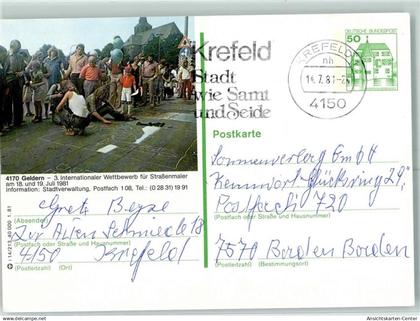 Krefeld
Stadt
wie Samt
und Seide
KREFELD
nh
14.7.81
4150
DEUTSCHE BUNDESPOST
50
4170 Geldern – 3. Internationaler Wettbewerb für Straßenmaler
am 18. und 19. Juli 1981
Information: Stadtverwaltung, Postfach 1 08, Tel.: (0 28 31) 19 91
Postkarte
Sonnenverlag GmbH
Kennwort „Glücksring 29“,
Postfach 720
(Postfach oder Straße und Hausnummer)
7570 Baden Baden
(Postleitzahl) (Bestimmungsort)
Grete
(Absender)
Zur Alten Schmiede 18
(Postfach oder Straße und Hausnummer)
4150 Krefeld
(Postleitzahl) (Ort)
www.ansichtskarten-center.de
Ansichtskarten-Center